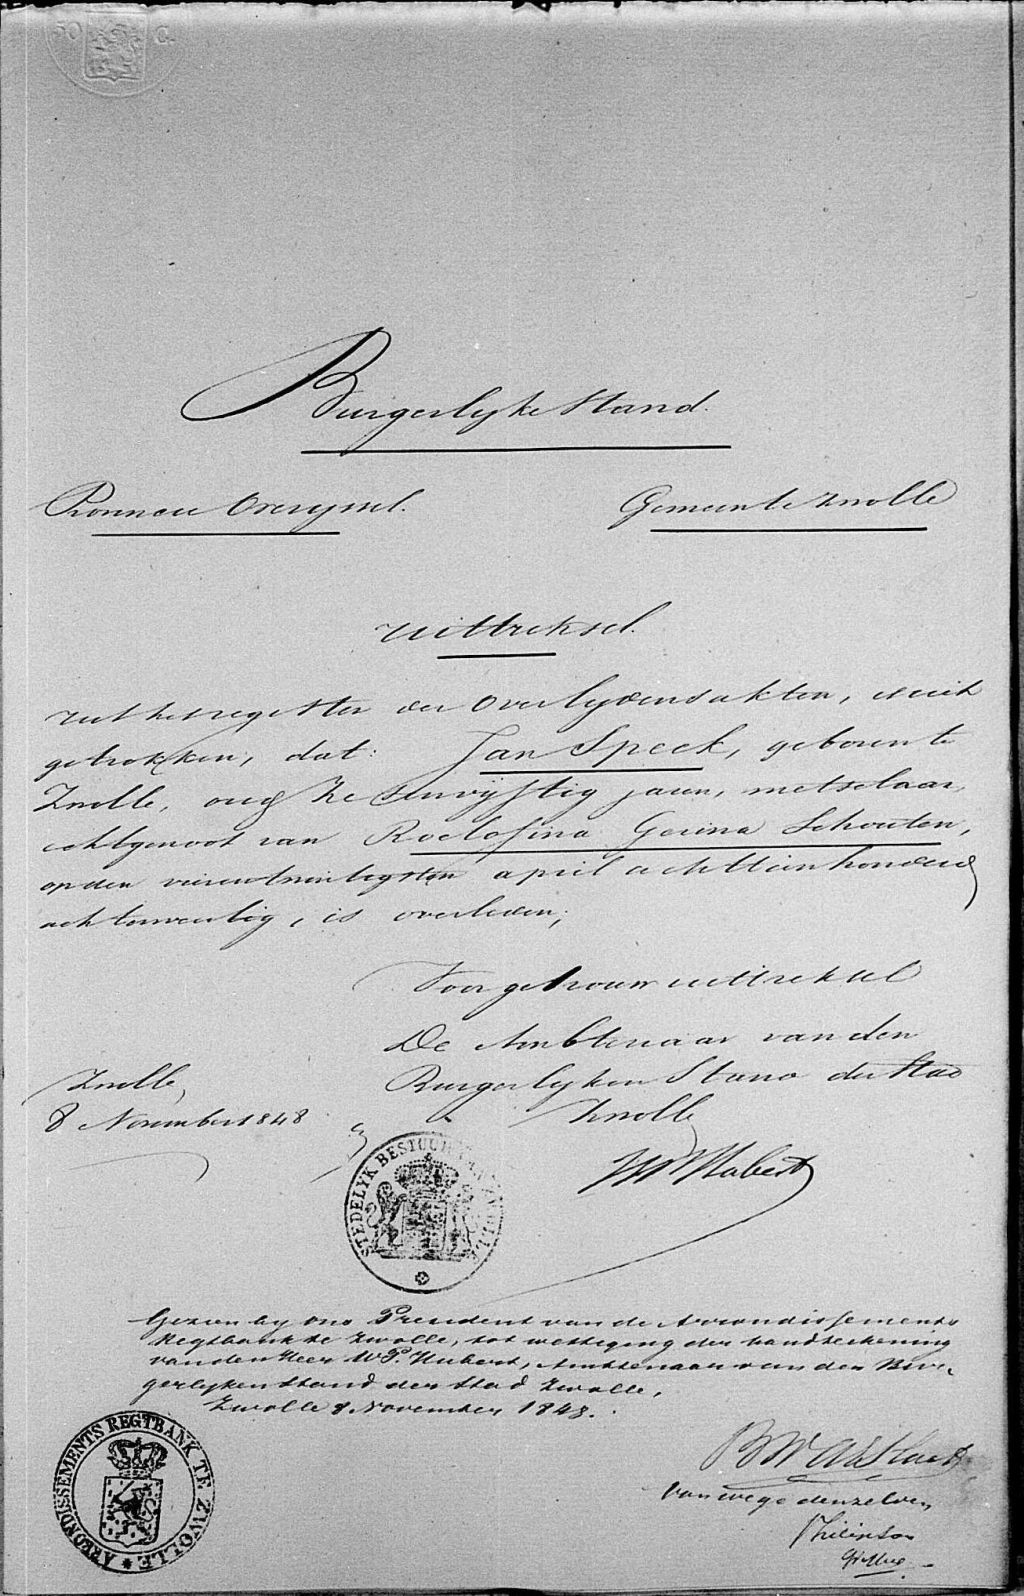 50 C.
Burgerlyke Stand.
Provincie Overyssel.
Gemeente Zwolle
Uittreksel.
uit het register der Overlydensakten, waaruit
getrokken, dat: Jan Speek, geboren te
Zwolle, oud zevenvyftig jaren, metselaar,
echtgenoot van Roelofina Gerina Schouten,
op den vierentwintigsten april achttienhonderd
achtenveertig, is overleden;
Voor getrouw uittreksel
De Ambtenaar van den
Burgerlyken Stand der Stad
Zwolle
Zwolle,
8 November 1848
WP Hubert
STEDELYK BESTUUR VAN ZWOLLE
Gezien by ons President van de Arrondissements
Regtbank te Zwolle, tot wettiging der handteekening
van den Heer W.P. Hubert, Ambtenaar van den Bur-
gerlyken Stand der Stad Zwolle,
Zwolle 8 November 1848.
ARRONDISSEMENTS REGTBANK TE ZWOLLE
van wege denzelven
Griffier